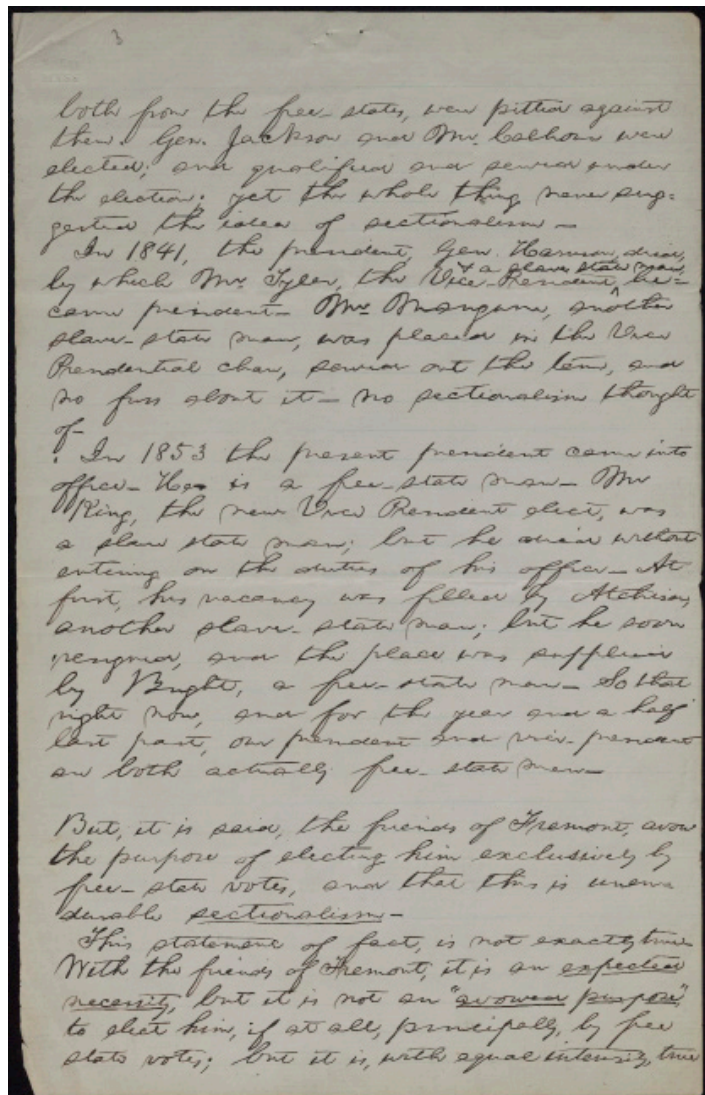 3
both from the free-states, were pitted against
them. Gen. Jackson and Mr. Calhoun were
elected; and qualified and served under
the election; yet the whole thing never sug=
gested the idea of sectionalism-
In 1841, the president, Gen. Harrison, died,
by which Mr. Tyler, the Vice-President, & a slave state man, be=
came president- Mr. Mangum, another
slave-state man, was placed in the Vice
Presidential chair, served out the term, and
no fuss about it- no sectionalism thought
of-
In 1853 the present president came into
office- He is a free-state man- Mr
King, the new Vice President elect, was
a slave state man; but he died without
entering on the duties of his office- At
first, his vacancy was filled by Atchison,
another slave-state man; but he soon
resigned, and the place was supplied
by Bright, a free-state man- So that
right now, and for the year and a half
last past, our president and vice-president
are both actually free-state men-
But, it is said, the friends of Fremont, avow
the purpose of electing him exclusively by
free-state votes, and that this is unen-
durable sectionalism-
This statement of fact, is not exactly true-
With the friends of Fremont, it is an expected
necessity, but it is not an "avowed purpose,"
to elect him, if at all, principally, by free
state votes; but it is, with equal intensity, true